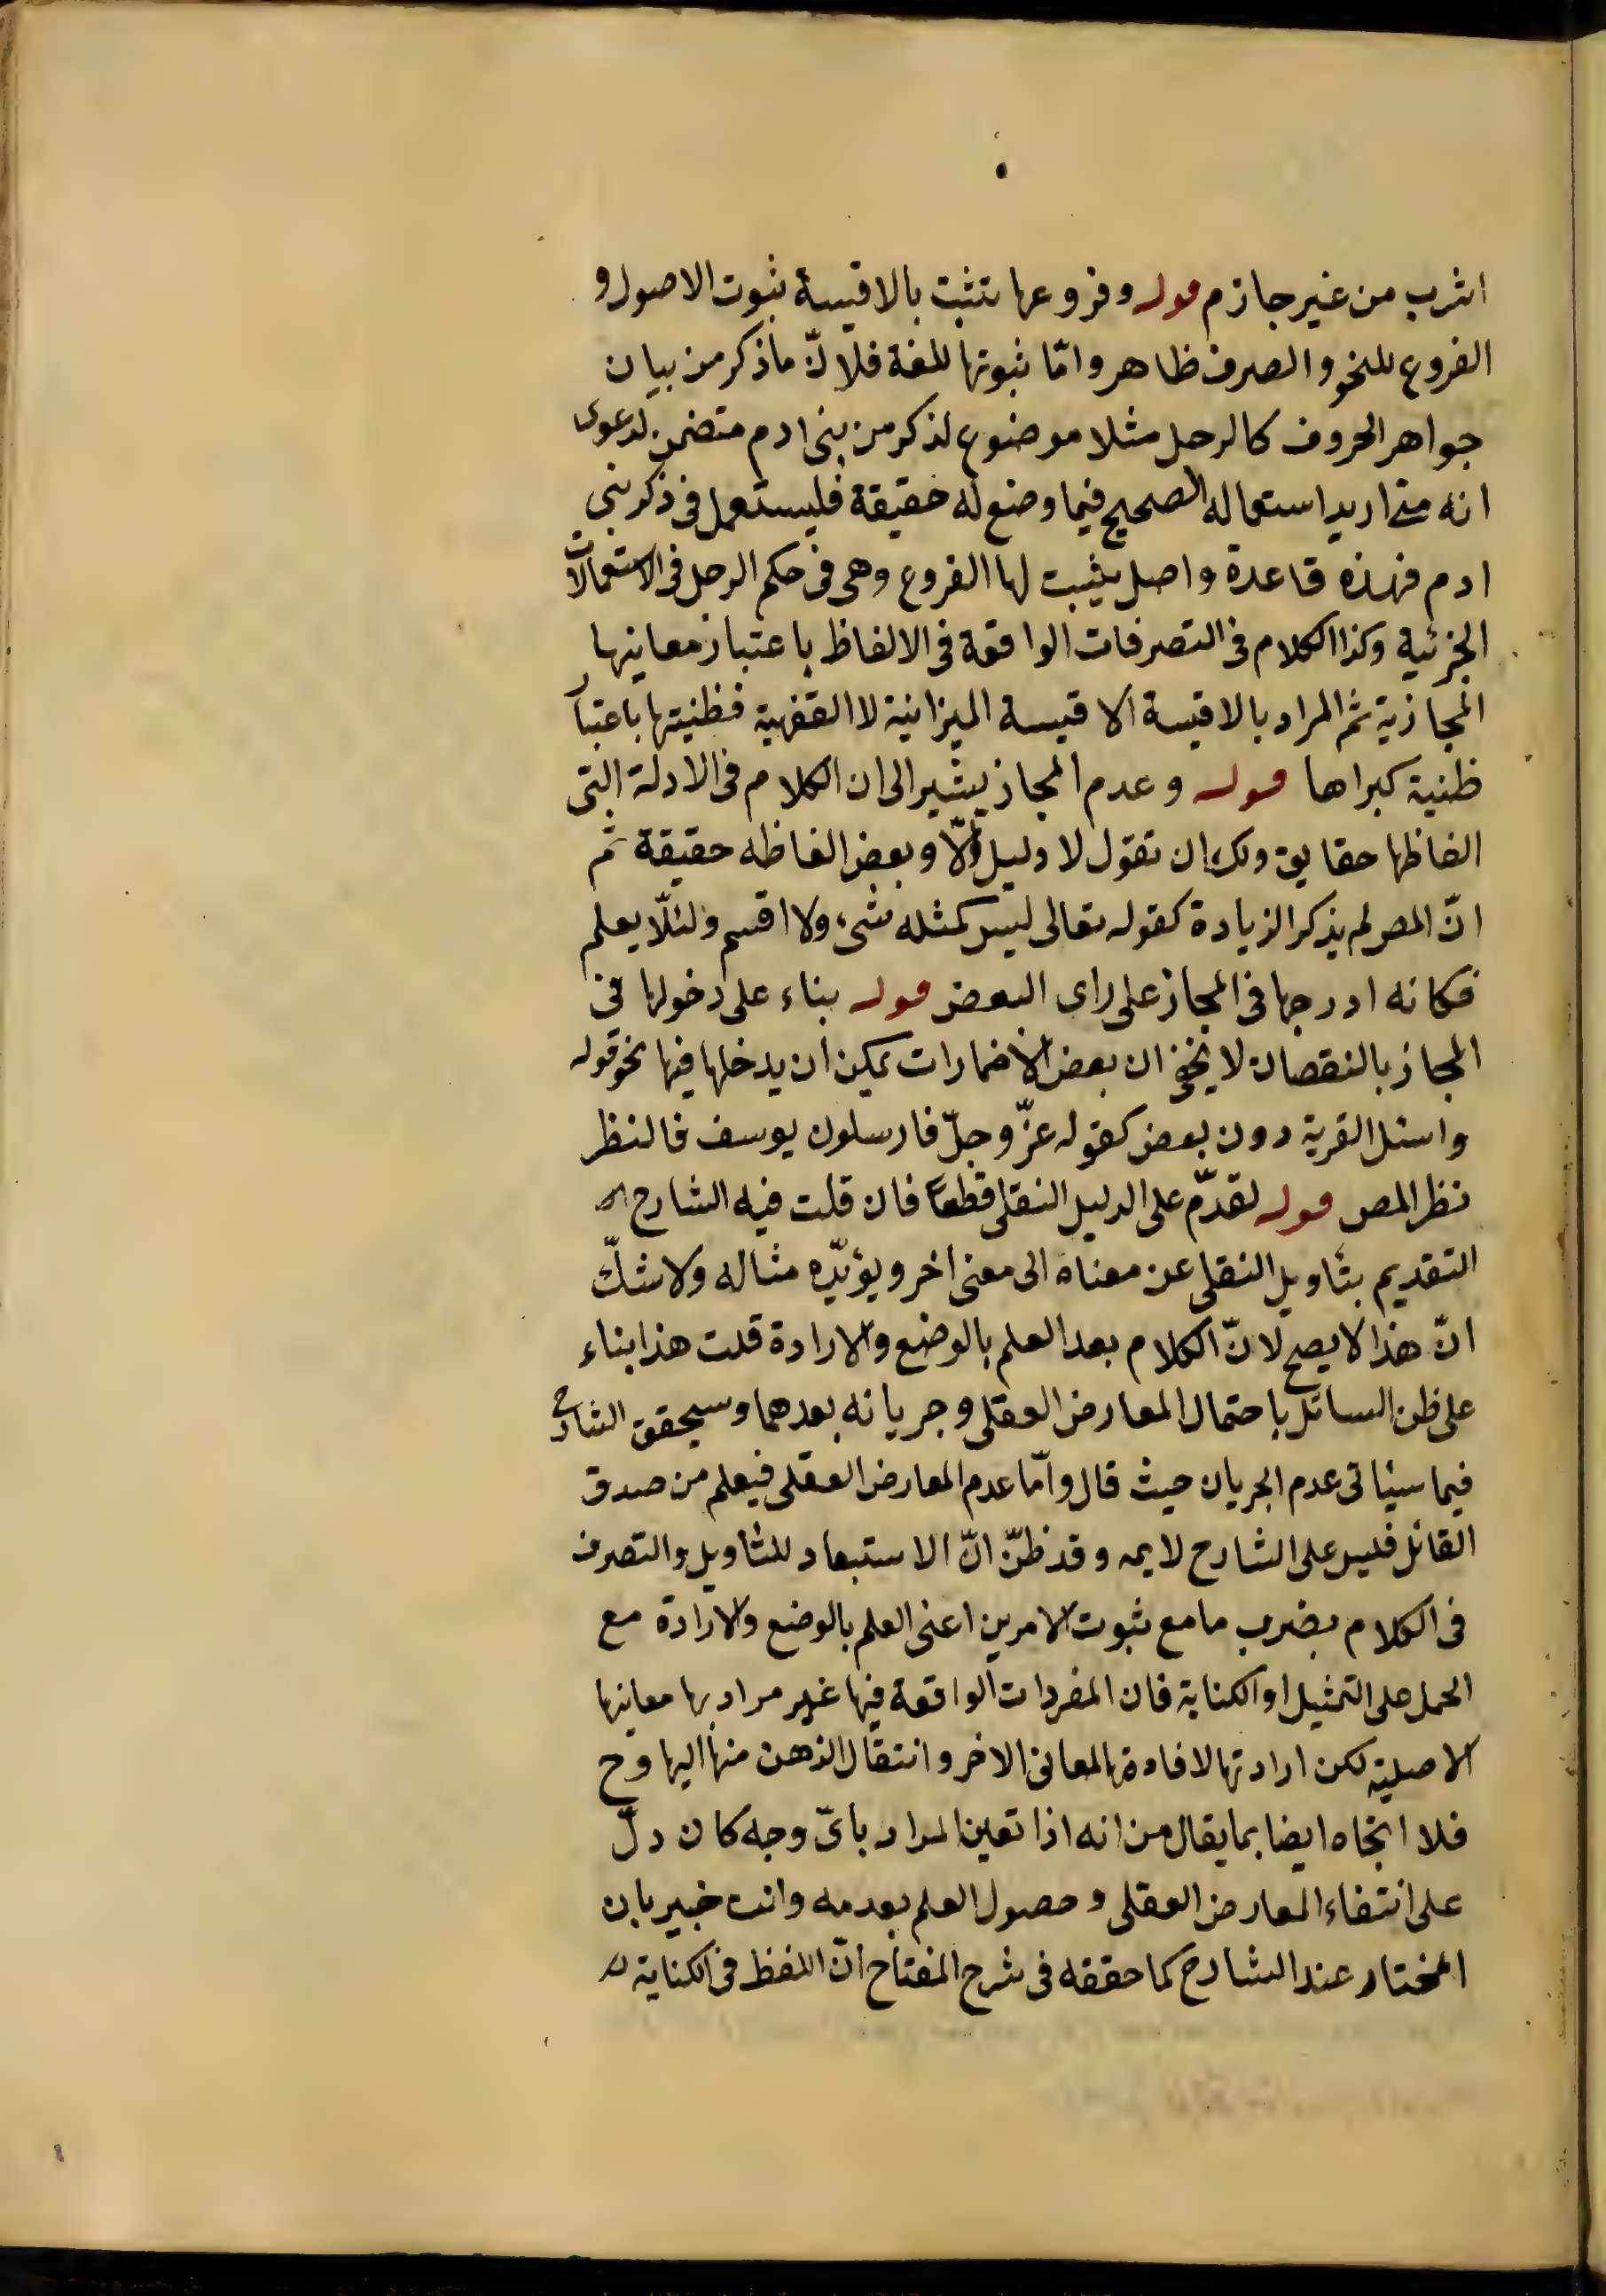 اشرب من غير جازم قوله وفروعها تثبت بالاقيسة ثبوت الاصول و
الفروع للنحو والصرف ظاهر وامّا ثبوتها للغة فلانّ ماذكر من بيان
جواهر الحروف كالرجل مثلا موضوع لذكر من بنى ادم متضمن لدعوى
انه متى اريد استعماله الصحيح فيما وضع له حقيقة فليستعمل فى ذكر بنى
ادم فهذه قاعدة واصل يثبت لها الفروع وهى فى حكم الرجل فى الاستعمالات
الجزئية وكذا الكلام فى التصرفات الواقعة فى الالفاظ باعتبار معانيها
المجازية ثم المراد بالاقيسة الاقيسة الميزانية لا الفقهية فظنيتها باعتبار
ظنية كبراها قوله وعدم المجاز يشير الى ان الكلام فى الادلة التى
الفاظها حقايق ولك ان تقول لا دليل الّا وبعض الفاظه حقيقة ثم
انّ المصر لم يذكر الزيادة كقوله تعالى ليس كمثله شىء ولا اقسم ولئلّا يعلم
فكانه ادرجها فى المجاز على راى البعض قوله بناء على دخولها فى
المجاز بالنقصان لا يخفى ان بعض الاضمارات يمكن ان يدخلها فيها نحو قوله
واسئل القرية دون بعض كقوله عزّ وجلّ فارسلون يوسف فالنظر
نظر المص قوله لقدّم على الدليل النقلى قطعا فان قلت فيه الشارح
التقديم بتأويل النقلى عن معناه الى معنى اخر ويؤيّده مثاله ولا شكّ
انّ هذا لا يصح لانّ الكلام بعد العلم بالوضع والارادة قلت هذا بناء
على ظن السائل باحتمال المعارض العقلى وجريانه بعدهما وسيحقق الشارح
فيما سيأتى عدم الجريان حيث قال وامّا عدم المعارض العقلى فيعلم من صدق
القائل فليس على الشارح لايمه وقد ظنّ انّ الاستبعاد للتأويل والتصرف
فى الكلام بضرب ما مع ثبوت الامرين اعنى العلم بالوضع والارادة مع
الحمل على التمثيل او الكناية فان المفردات الواقعة فيها غير مراد بها معانيها
الاصلية لكن ارادتها لافادتها المعانى الاخر وانتقال الذهن منها اليها وح
فلا اتجاه ايضا بما يقال من انه اذا تعين المراد باىّ وجه كان دلّ
على انتفاء المعارض العقلى وحصول العلم بعدمه وانت خبير بان
المختار عند الشارح كما حققه فى شرح المفتاح انّ اللفظ فى الكناية